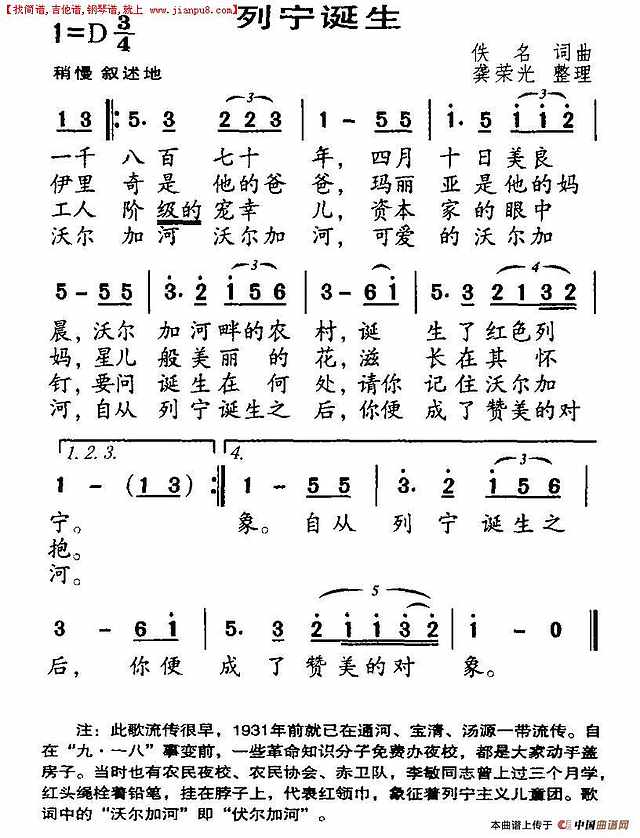 【找简谱,吉他谱,钢琴谱,就上 www.jianpu8.com】
列宁诞生
1=D 3/4
佚名 词曲
稍慢 叙述地
龚荣光 整理
1 3 5. 3 2 2 3 1 - 5 5 1. 5 1 1 2
一千 八百 七十 年, 四月 十日美良
伊里 奇是 他的爸 爸, 玛丽 亚是他的妈
工人 阶级的宠幸 儿, 资本 家的眼中
沃尔 加河 沃尔加 河, 可爱 的沃尔加
5 - 5 5 3. 2 1 5 6 3 - 6 1 5. 3 2 1 3 2
晨, 沃尔 加河畔的农 村, 诞 生了红色列
妈, 星儿 般美丽的 花, 滋 长在其怀
钉, 要问 诞生在何 处, 请你 记住沃尔加
河, 自从 列宁诞生之 后, 你便 成了赞美的对
1.2.3. 4.
1 - (1 3) 1 - 5 5 3. 2 1 5 6
宁。 象。自从 列宁诞生之
抱。
河。
3 - 6 1 5. 3 2 1 1 3 2 1 - 0
后, 你便 成了赞美的对 象。
注：此歌流传很早，1931年前就已在通河、宝清、汤源一带流传。自
在“九·一八”事变前，一些革命知识分子免费办夜校，都是大家动手盖
房子。当时也有农民夜校、农民协会、赤卫队，李敏同志曾上过三个月学，
红头绳栓着铅笔，挂在脖子上，代表红领巾，象征着列宁主义儿童团。歌
词中的“沃尔加河”即“伏尔加河”。
本曲谱上传于 中国曲谱网